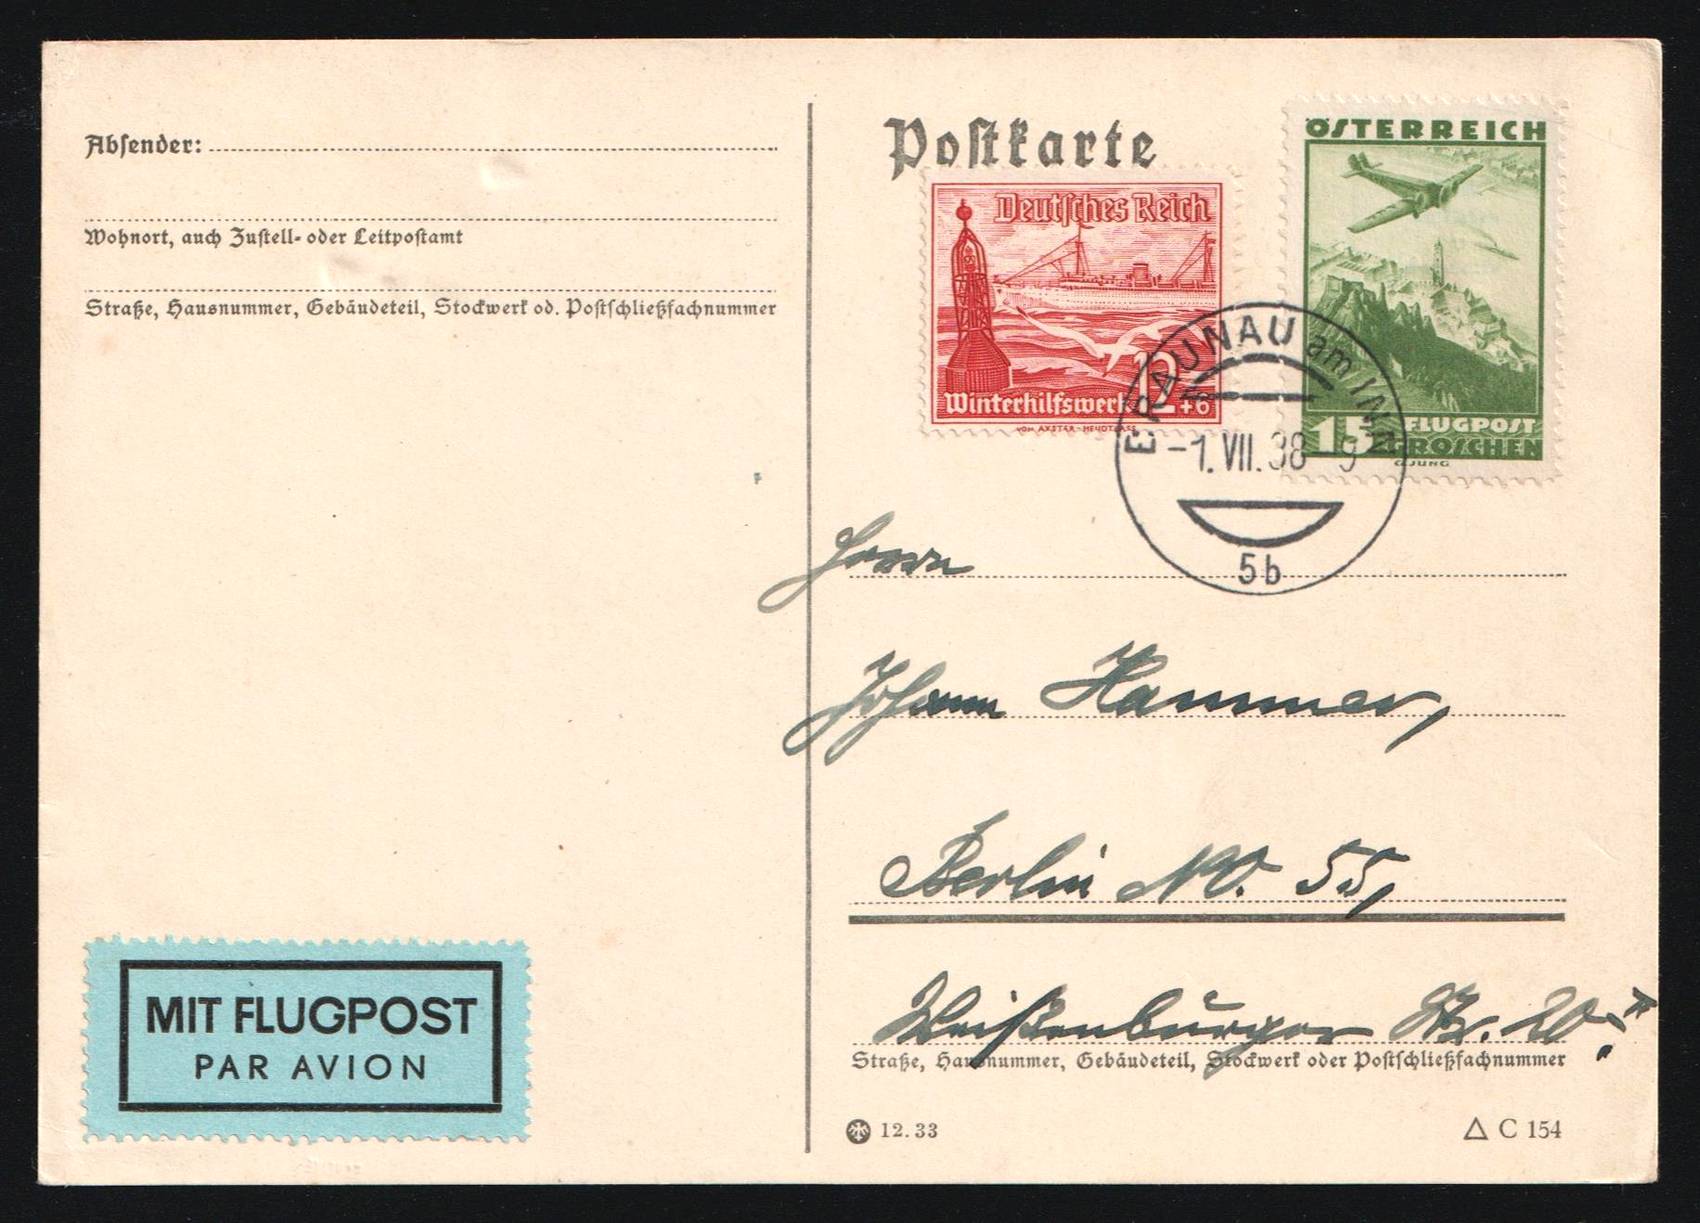 Absender:
Wohnort, auch Zustell- oder Leitpostamt
Straße, Hausnummer, Gebäudeteil, Stockwerk od. Postschließfachnummer
Postkarte
Deutsches Reich
Winterhilfswerk 12+6
VON AXSTER-HEUDTLASS
ÖSTERREICH
FLUGPOST
15 GROSCHEN
G.JUNG
BRAUNAU am INN
-1.VII.38 9
5b
Herrn
Johann Hammer,
Berlin NO. 55,
Weißenburger Str. 20.
Straße, Hausnummer, Gebäudeteil, Stockwerk oder Postschließfachnummer
MIT FLUGPOST
PAR AVION
12.33
△ C 154